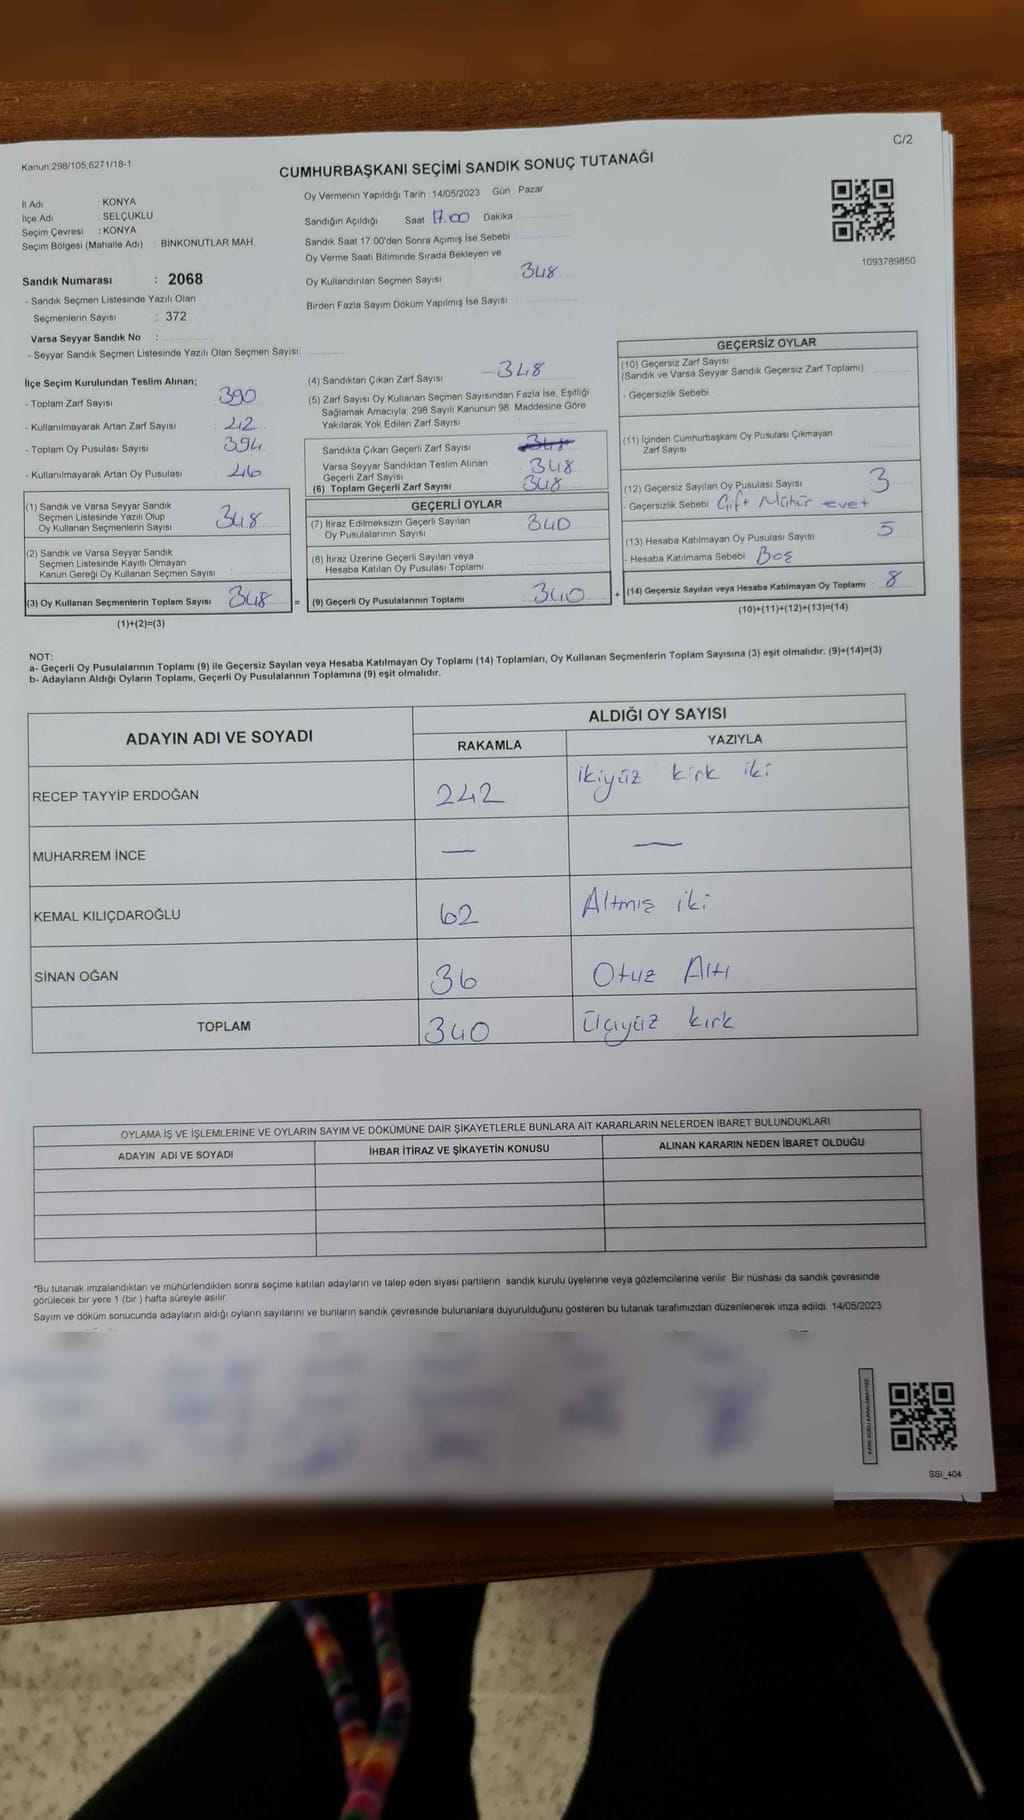 C/2
Kanun;298/105;6271/18-1
CUMHURBAŞKANI SEÇİMİ SANDIK SONUÇ TUTANAĞI
İl Adı : KONYA
İlçe Adı : SELÇUKLU
Seçim Çevresi : KONYA
Seçim Bölgesi (Mahalle Adı) : BİNKONUTLAR MAH.
Sandık Numarası : 2068
- Sandık Seçmen Listesinde Yazılı Olan
Seçmenlerin Sayısı : 372
Varsa Seyyar Sandık No :
- Seyyar Sandık Seçmen Listesinde Yazılı Olan Seçmen Sayısı:
Oy Vermenin Yapıldığı Tarih : 14/05/2023 Gün : Pazar
Sandığın Açıldığı Saat 17.00 Dakika :
Sandık Saat 17.00'den Sonra Açımış İse Sebebi :
Oy Verme Saati Bitiminde Sırada Bekleyen ve
Oy Kullandırılan Seçmen Sayısı : 348
Birden Fazla Sayım Döküm Yapılmış İse Sayısı :
1093789850
İlçe Seçim Kurulundan Teslim Alınan;
- Toplam Zarf Sayısı : 390
- Kullanılmayarak Artan Zarf Sayısı : 42
- Toplam Oy Pusulası Sayısı : 394
- Kullanılmayarak Artan Oy Pusulası : 46
(1) Sandık ve Varsa Seyyar Sandık
Seçmen Listesinde Yazılı Olup
Oy Kullanan Seçmenlerin Sayısı : 348
(2) Sandık ve Varsa Seyyar Sandık
Seçmen Listesinde Kayıtlı Olmayan
Kanun Gereği Oy Kullanan Seçmen Sayısı :
(3) Oy Kullanan Seçmenlerin Toplam Sayısı : 348 =
(1)+(2)=(3)
(4) Sandıktan Çıkan Zarf Sayısı : 348
(5) Zarf Sayısı Oy Kullanan Seçmen Sayısından Fazla İse, Eşitliği
Sağlamak Amacıyla; 298 Sayılı Kanunun 98. Maddesine Göre
Yakılarak Yok Edilen Zarf Sayısı :
Sandıkta Çıkan Geçerli Zarf Sayısı :
Varsa Seyyar Sandıktan Teslim Alınan
Geçerli Zarf Sayısı : 348
(6) Toplam Geçerli Zarf Sayısı : 348
GEÇERLİ OYLAR
(7) İtiraz Edilmeksizin Geçerli Sayılan
Oy Pusulalarının Sayısı : 340
(8) İtiraz Üzerine Geçerli Sayılan veya
Hesaba Katılan Oy Pusulası Toplamı :
(9) Geçerli Oy Pusulalarının Toplamı : 340 +
GEÇERSİZ OYLAR
(10) Geçersiz Zarf Sayısı
(Sandık ve Varsa Seyyar Sandık Geçersiz Zarf Toplamı) :
- Geçersizlik Sebebi :
(11) İçinden Cumhurbaşkanı Oy Pusulası Çıkmayan
Zarf Sayısı :
(12) Geçersiz Sayılan Oy Pusulası Sayısı : 3
- Geçersizlik Sebebi : Çift Mühür evet
(13) Hesaba Katılmayan Oy Pusulası Sayısı : 5
- Hesaba Katılmama Sebebi : Boş
(14) Geçersiz Sayılan veya Hesaba Katılmayan Oy Toplamı : 8
(10)+(11)+(12)+(13)=(14)
NOT:
a- Geçerli Oy Pusulalarının Toplamı (9) ile Geçersiz Sayılan veya Hesaba Katılmayan Oy Toplamı (14) Toplamları, Oy Kullanan Seçmenlerin Toplam Sayısına (3) eşit olmalıdır. (9)+(14)=(3)
b- Adayların Aldığı Oyların Toplamı, Geçerli Oy Pusulalarının Toplamına (9) eşit olmalıdır.
ADAYIN ADI VE SOYADI ALDIĞI OY SAYISI
RAKAMLA YAZIYLA
RECEP TAYYİP ERDOĞAN 242 ikiyüz kırk iki
MUHARREM İNCE — —
KEMAL KILIÇDAROĞLU 62 Altmış iki
SİNAN OĞAN 36 Otuz Altı
TOPLAM 340 Üçyüz kırk
OYLAMA İŞ VE İŞLEMLERİNE VE OYLARIN SAYIM VE DÖKÜMÜNE DAİR ŞİKAYETLERLE BUNLARA AİT KARARLARIN NELERDEN İBARET BULUNDUKLARI
ADAYIN ADI VE SOYADI İHBAR İTİRAZ VE ŞİKAYETİN KONUSU ALINAN KARARIN NEDEN İBARET OLDUĞU
*Bu tutanak imzalandıktan ve mühürlendikten sonra seçime katılan adayların ve talep eden siyasi partilerin sandık kurulu üyelerine veya gözlemcilerine verilir. Bir nüshası da sandık çevresinde
görülecek bir yere 1 (bir ) hafta süreyle asılır.
Sayım ve döküm sonucunda adayların aldığı oyların sayılarını ve bunların sandık çevresinde bulunanlara duyurulduğunu gösteren bu tutanak tarafımızdan düzenlenerek imza edildi. 14/05/2023
SSI_404